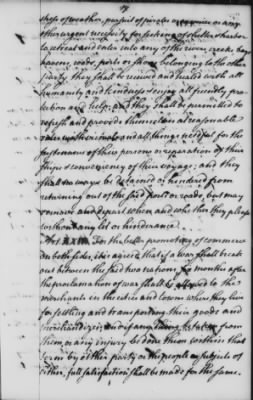 stress of weather, pursuit of pirates or enemies or any
other urgent necessity for seeking of shelter & harbor
to retreat and enter into any of the rivers, creeks, bays
havens, roads, ports or shores belonging to the other
party they shall be received and treated with all
humanity and kindness & enjoy all friendly pro-
tection and help; and they shall be permitted to
refresh and provide themselves at reasonable
rates with victuals and all things needful for the
sustenance of their persons or reparation of their
ships & conveniency of their voyage; and they
shall no ways be detained or hindered from
returning out of the said ports or roads, but may
remove and depart when and whither they please
without any let or hinderance.
Art. XXIII. For the better promoting of commerce
on both sides, it is agreed that if a war shall break
out between the said two nations, six months after
the proclamation of war shall be allowed to the
merchants in the cities and towns where they live
for settling and transporting their goods and
merchandizes; and if any thing be taken from
them or any injury be done them within that
term by either party or the people or subjects of
either, full satisfaction shall be made for the same.